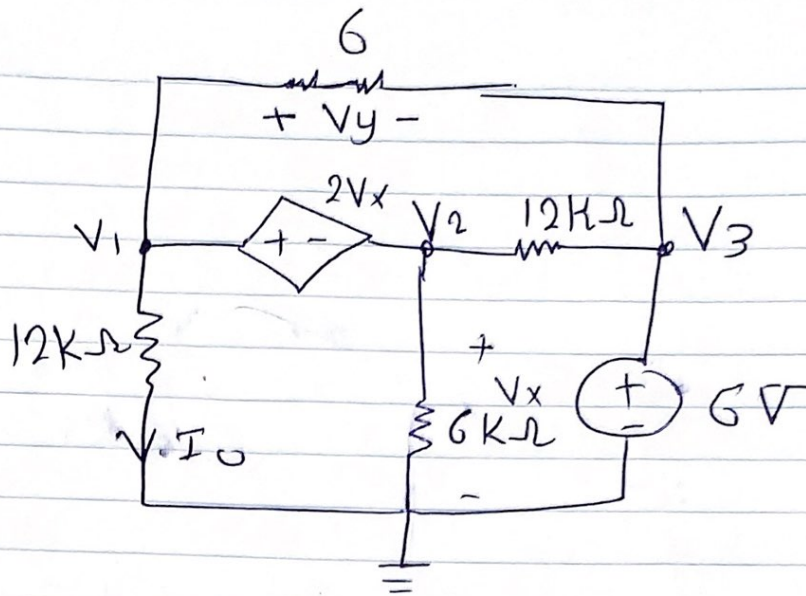 6
+ Vy -
2Vx
V1
+ -
V2
12KΩ
V3
12KΩ
+
Vx
-
6KΩ
+
-
6V
Io